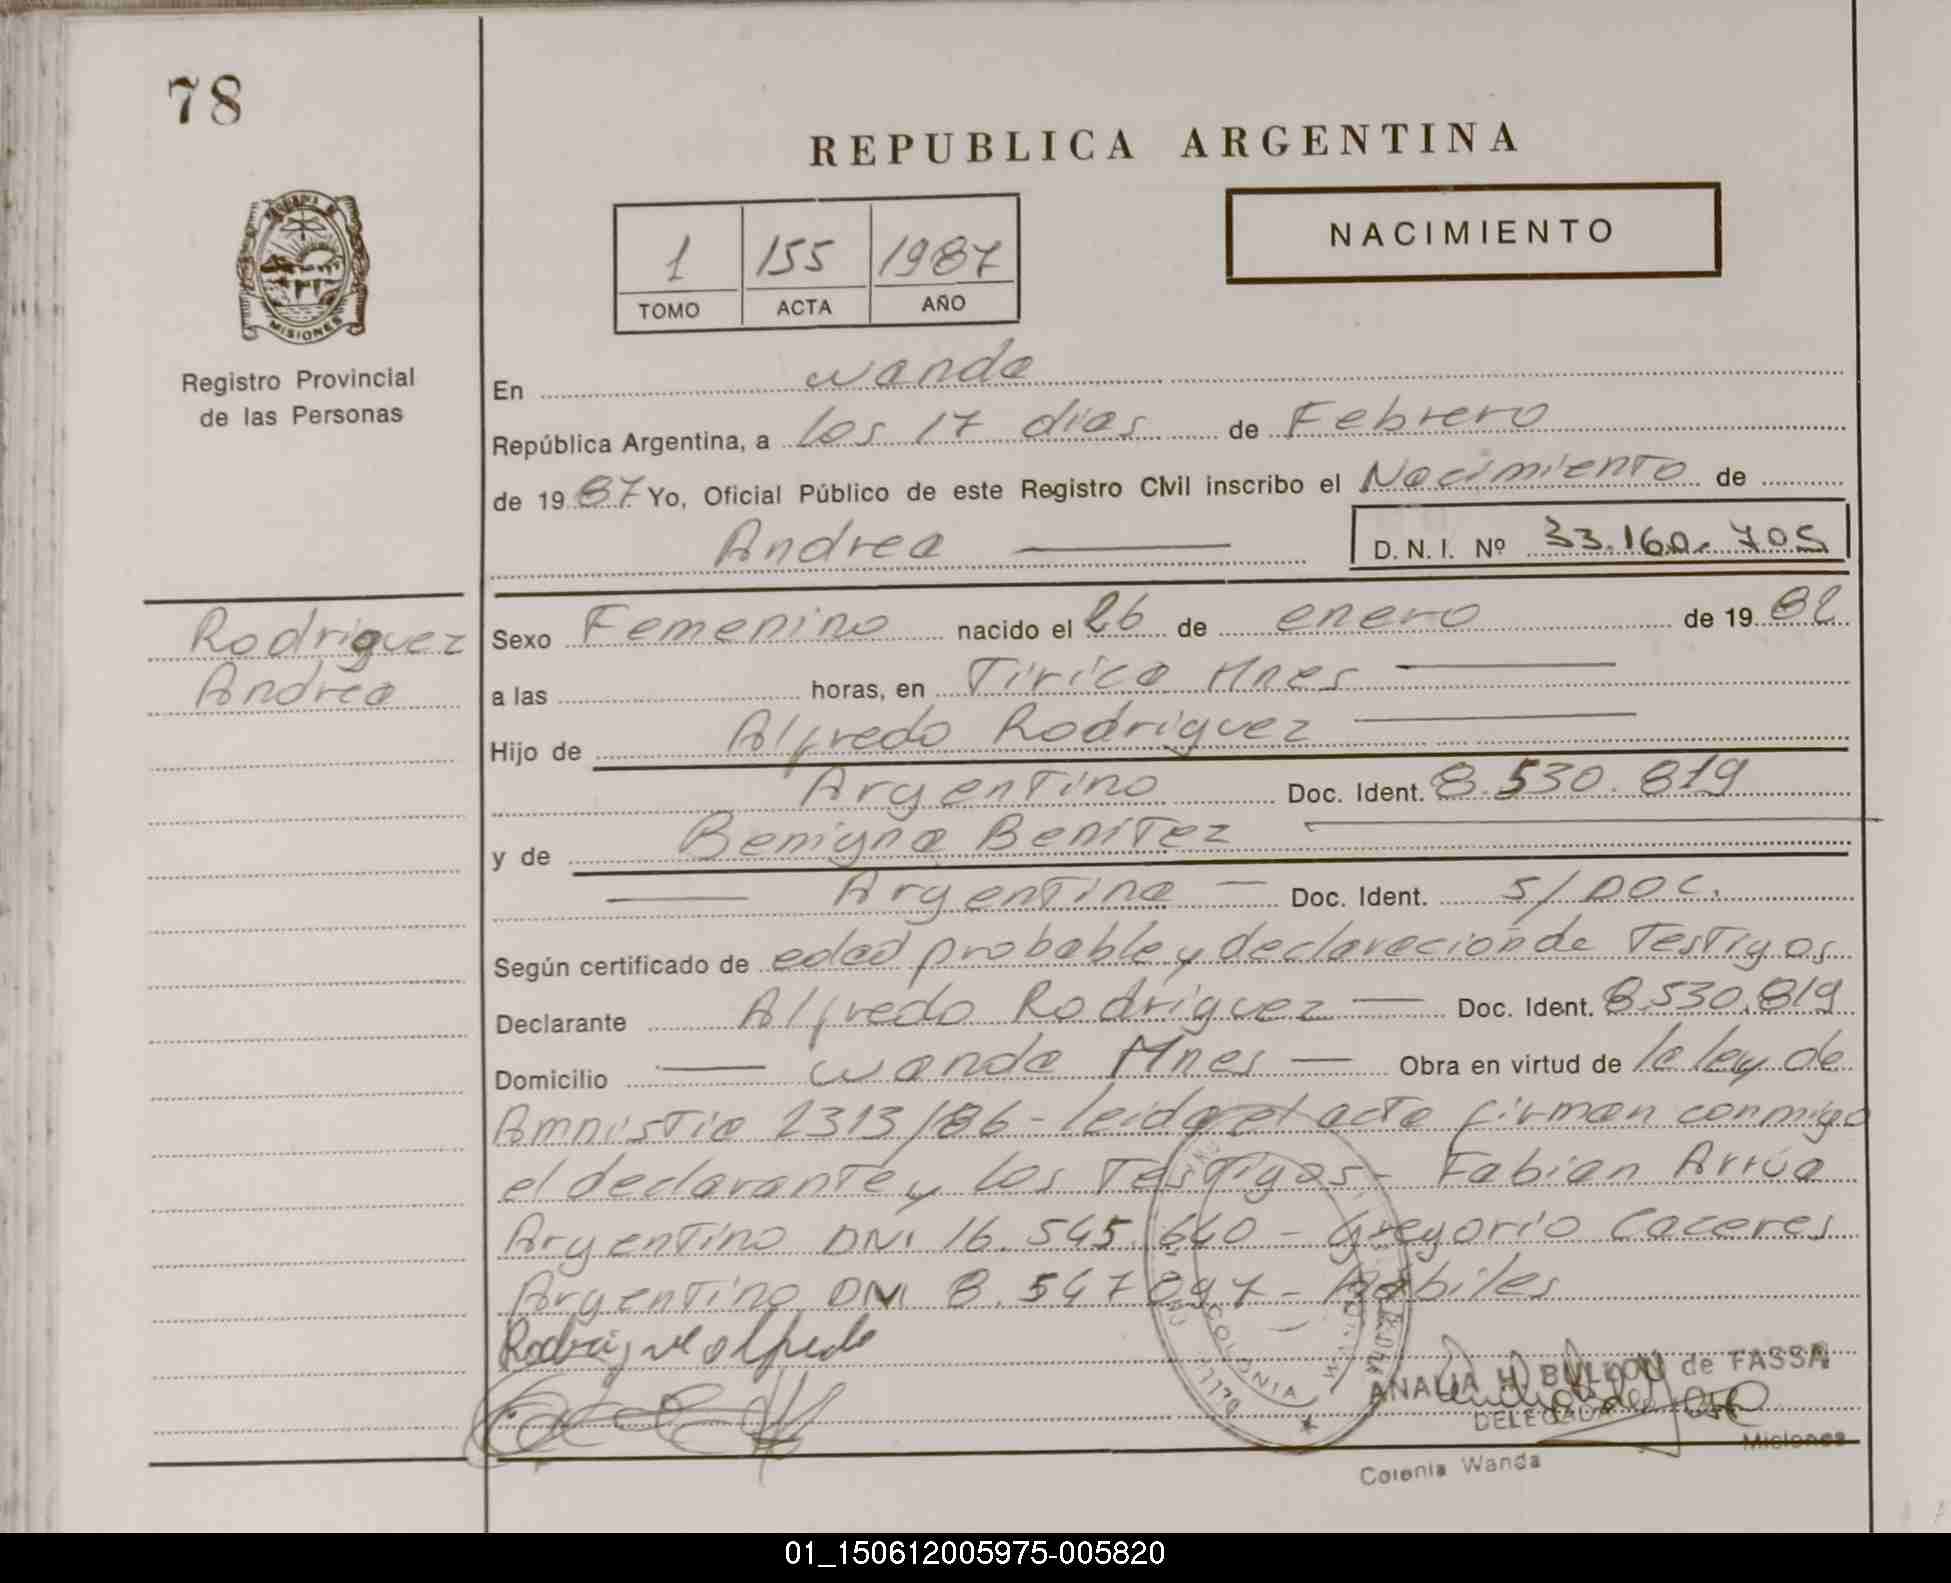 78
REPUBLICA ARGENTINA
NACIMIENTO
1 155 1987
TOMO ACTA AÑO
MISIONES
Registro Provincial
de las Personas
En wanda
República Argentina, a los 17 dias de Febrero
de 19 87 Yo, Oficial Público de este Registro Civil inscribo el Nacimiento de
Andrea
D. N. I. Nº 33.160.705
Rodriguez
Andrea
Sexo Femenino nacido el 26 de enero de 19 82
a las horas, en Tirica Mnes
Hijo de Alfredo Rodriguez
Argentino Doc. Ident. 8.530.819
y de Benigna Benitez
Argentina Doc. Ident. s/DOC.
Según certificado de edad probable y declaracion de Testigos
Declarante Alfredo Rodriguez Doc. Ident. 8.530.819
Domicilio wanda Mnes Obra en virtud de la ley de
Amnistia 2313/86 - leida el acta firman conmigo
el declarante y los Testigos - Fabian Arrúa
Argentino DNI 16.545.640 - Gregorio Caceres
Argentino DNI 8.547.897 - Habiles
COLONIA
ANALIA H. BULLON de FASSA
DELEGADA
Misiones
Colonia Wanda
01_150612005975-005820